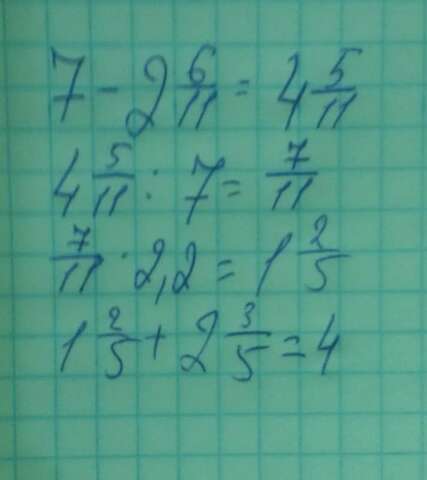 7 - 2 6/11 = 4 5/11
4 5/11 : 7 = 7/11
7/11 · 2,2 = 1 2/5
1 2/5 + 2 3/5 = 4